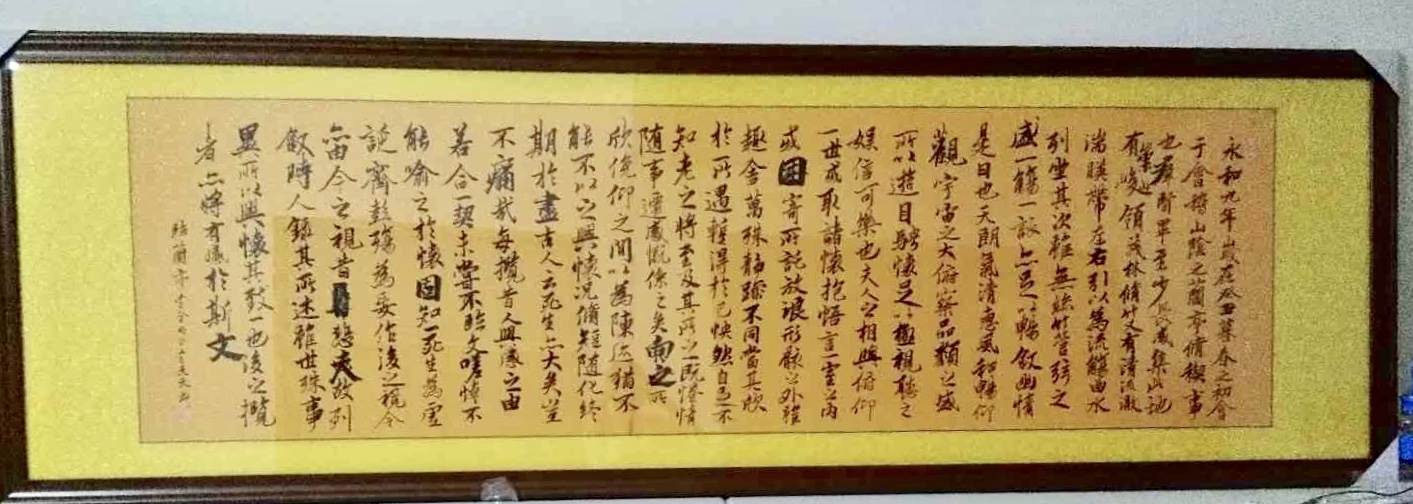 永和九年歲在癸丑暮春之初會
于會稽山陰之蘭亭脩稧事
也羣賢畢至少長咸集此地
有崇山峻領茂林脩竹又有清流激
湍暎帶左右引以為流觴曲水
列坐其次雖無絲竹管弦之
盛一觴一詠亦足以暢敘幽情
是日也天朗氣清惠風和暢仰
觀宇宙之大俯察品類之盛
所以遊目騁懷足以極視聽之
娛信可樂也夫人之相與俯仰
一世或取諸懷抱悟言一室之內
或因寄所託放浪形骸之外雖
趣舍萬殊靜躁不同當其欣
於所遇暫得於己怏然自足不
知老之將至及其所之既惓情
隨事遷感慨係之矣向之所
欣俛仰之間以為陳迹猶不
能不以之興懷況脩短隨化終
期於盡古人云死生亦大矣豈
不痛哉每攬昔人興感之由
若合一契未嘗不臨文嗟悼不
能喻之於懷固知死生為虛
誕齊彭殤為妄作後之視今
亦由今之視昔悲夫故列
敘時人錄其所述雖世殊事
異所以興懷其致一也後之攬
者亦將有感於斯文
臨蘭亭